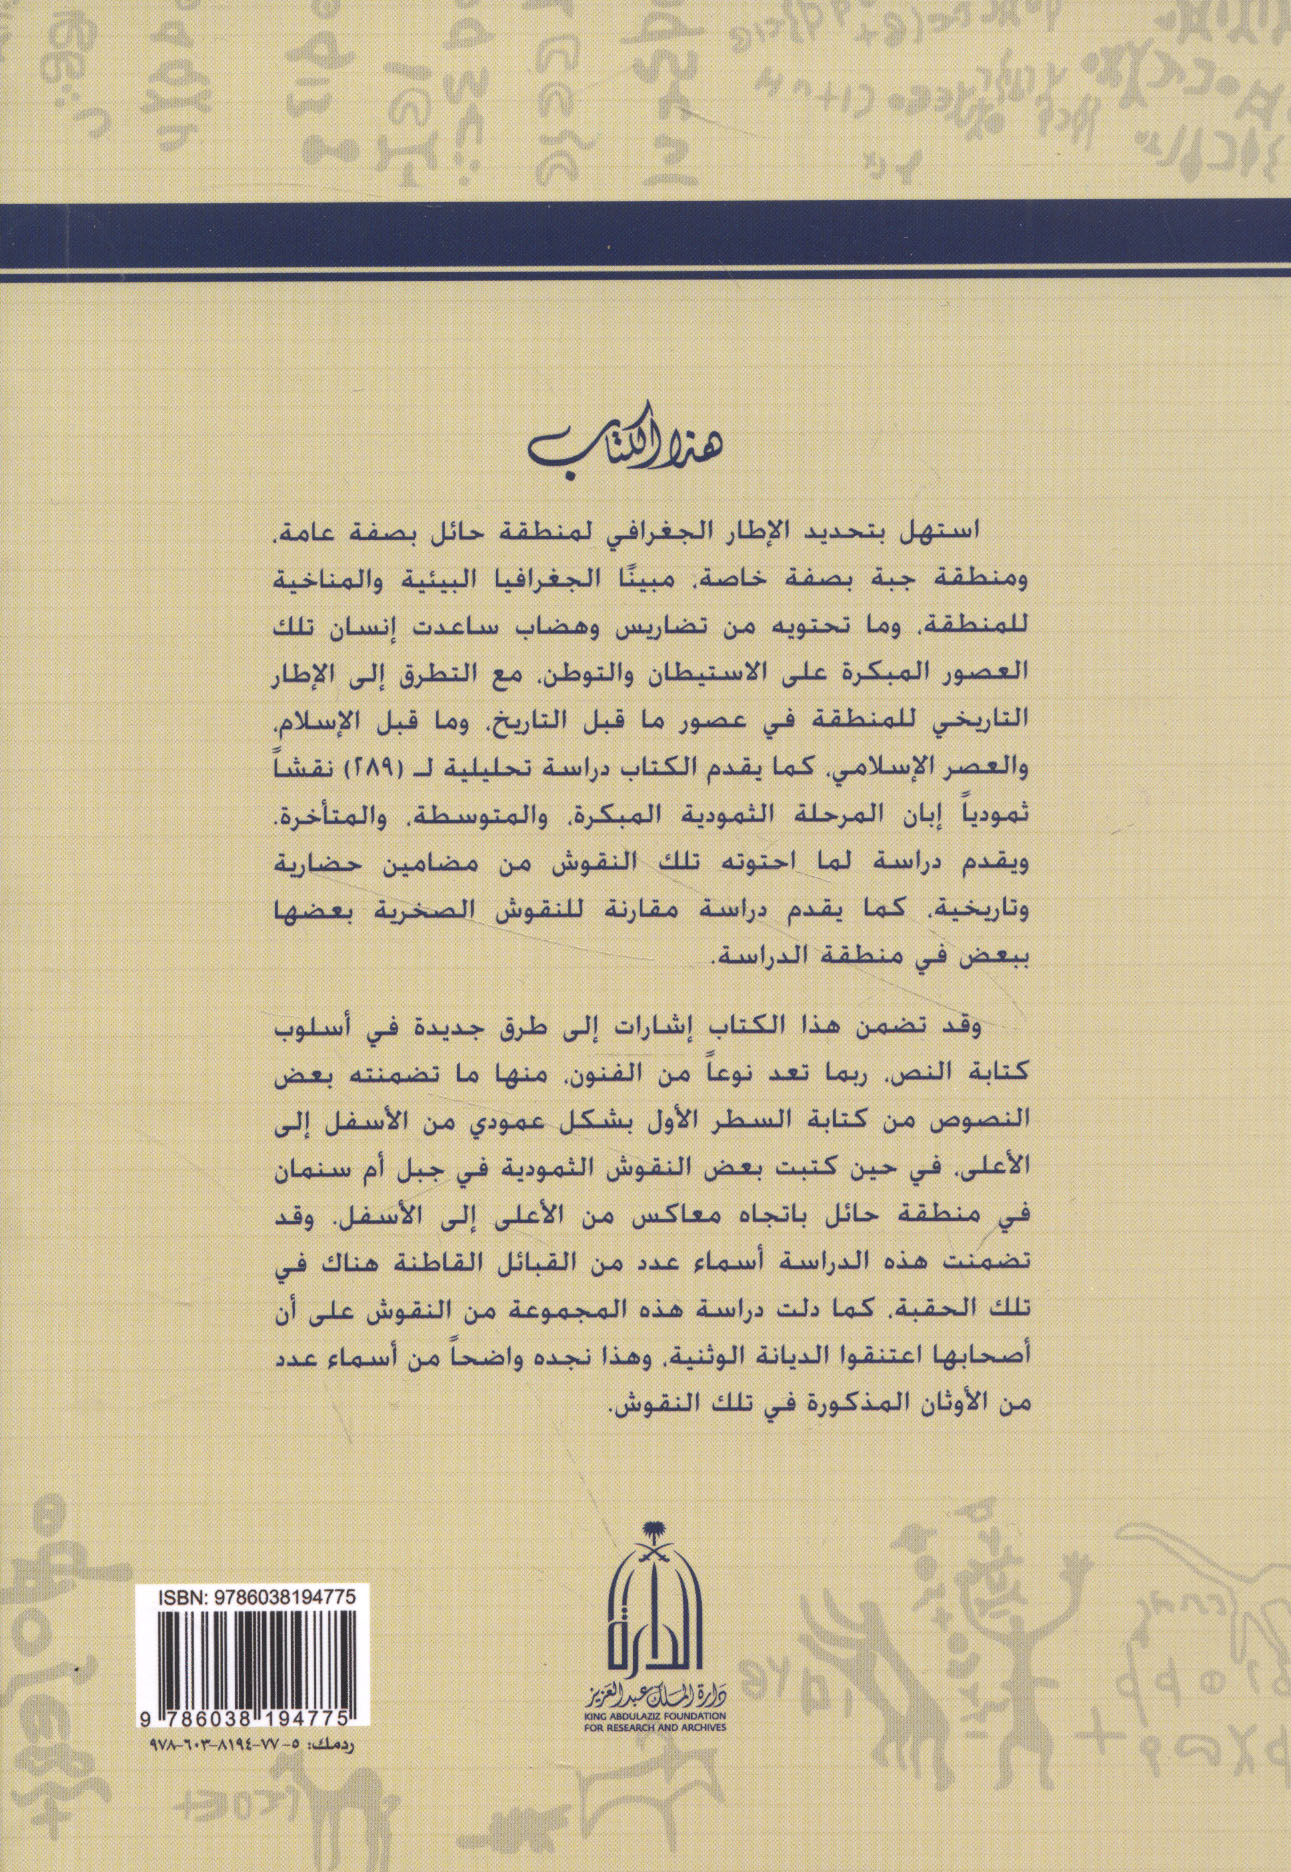 هذا الكتاب
استهل بتحديد الإطار الجغرافي لمنطقة حائل بصفة عامة،
ومنطقة جبة بصفة خاصة، مبينًا الجغرافيا البيئية والمناخية
للمنطقة، وما تحتويه من تضاريس وهضاب ساعدت إنسان تلك
العصور المبكرة على الاستيطان والتوطن، مع التطرق إلى الإطار
التاريخي للمنطقة في عصور ما قبل التاريخ، وما قبل الإسلام،
والعصر الإسلامي، كما يقدم الكتاب دراسة تحليلية لـ (٢٨٩) نقشاً
ثمودياً إبان المرحلة الثمودية المبكرة، والمتوسطة، والمتأخرة.
ويقدم دراسة لما احتوته تلك النقوش من مضامين حضارية
وتاريخية، كما يقدم دراسة مقارنة للنقوش الصخرية بعضها
ببعض في منطقة الدراسة.
وقد تضمن هذا الكتاب إشارات إلى طرق جديدة في أسلوب
كتابة النص، ربما تعد نوعاً من الفنون، منها ما تضمنته بعض
النصوص من كتابة السطر الأول بشكل عمودي من الأسفل إلى
الأعلى، في حين كتبت بعض النقوش الثمودية في جبل أم سنمان
في منطقة حائل باتجاه معاكس من الأعلى إلى الأسفل. وقد
تضمنت هذه الدراسة أسماء عدد من القبائل القاطنة هناك في
تلك الحقبة، كما دلت دراسة هذه المجموعة من النقوش على أن
أصحابها اعتنقوا الديانة الوثنية، وهذا نجده واضحاً من أسماء عدد
من الأوثان المذكورة في تلك النقوش.
الدارة
دارة الملك عبدالعزيز
KING ABDULAZIZ FOUNDATION
FOR RESEARCH AND ARCHIVES
ISBN: 9786038194775
9 786038 194775
ردمك: ٥-٧٧-٨١٩٤-٦٠٣-٩٧٨